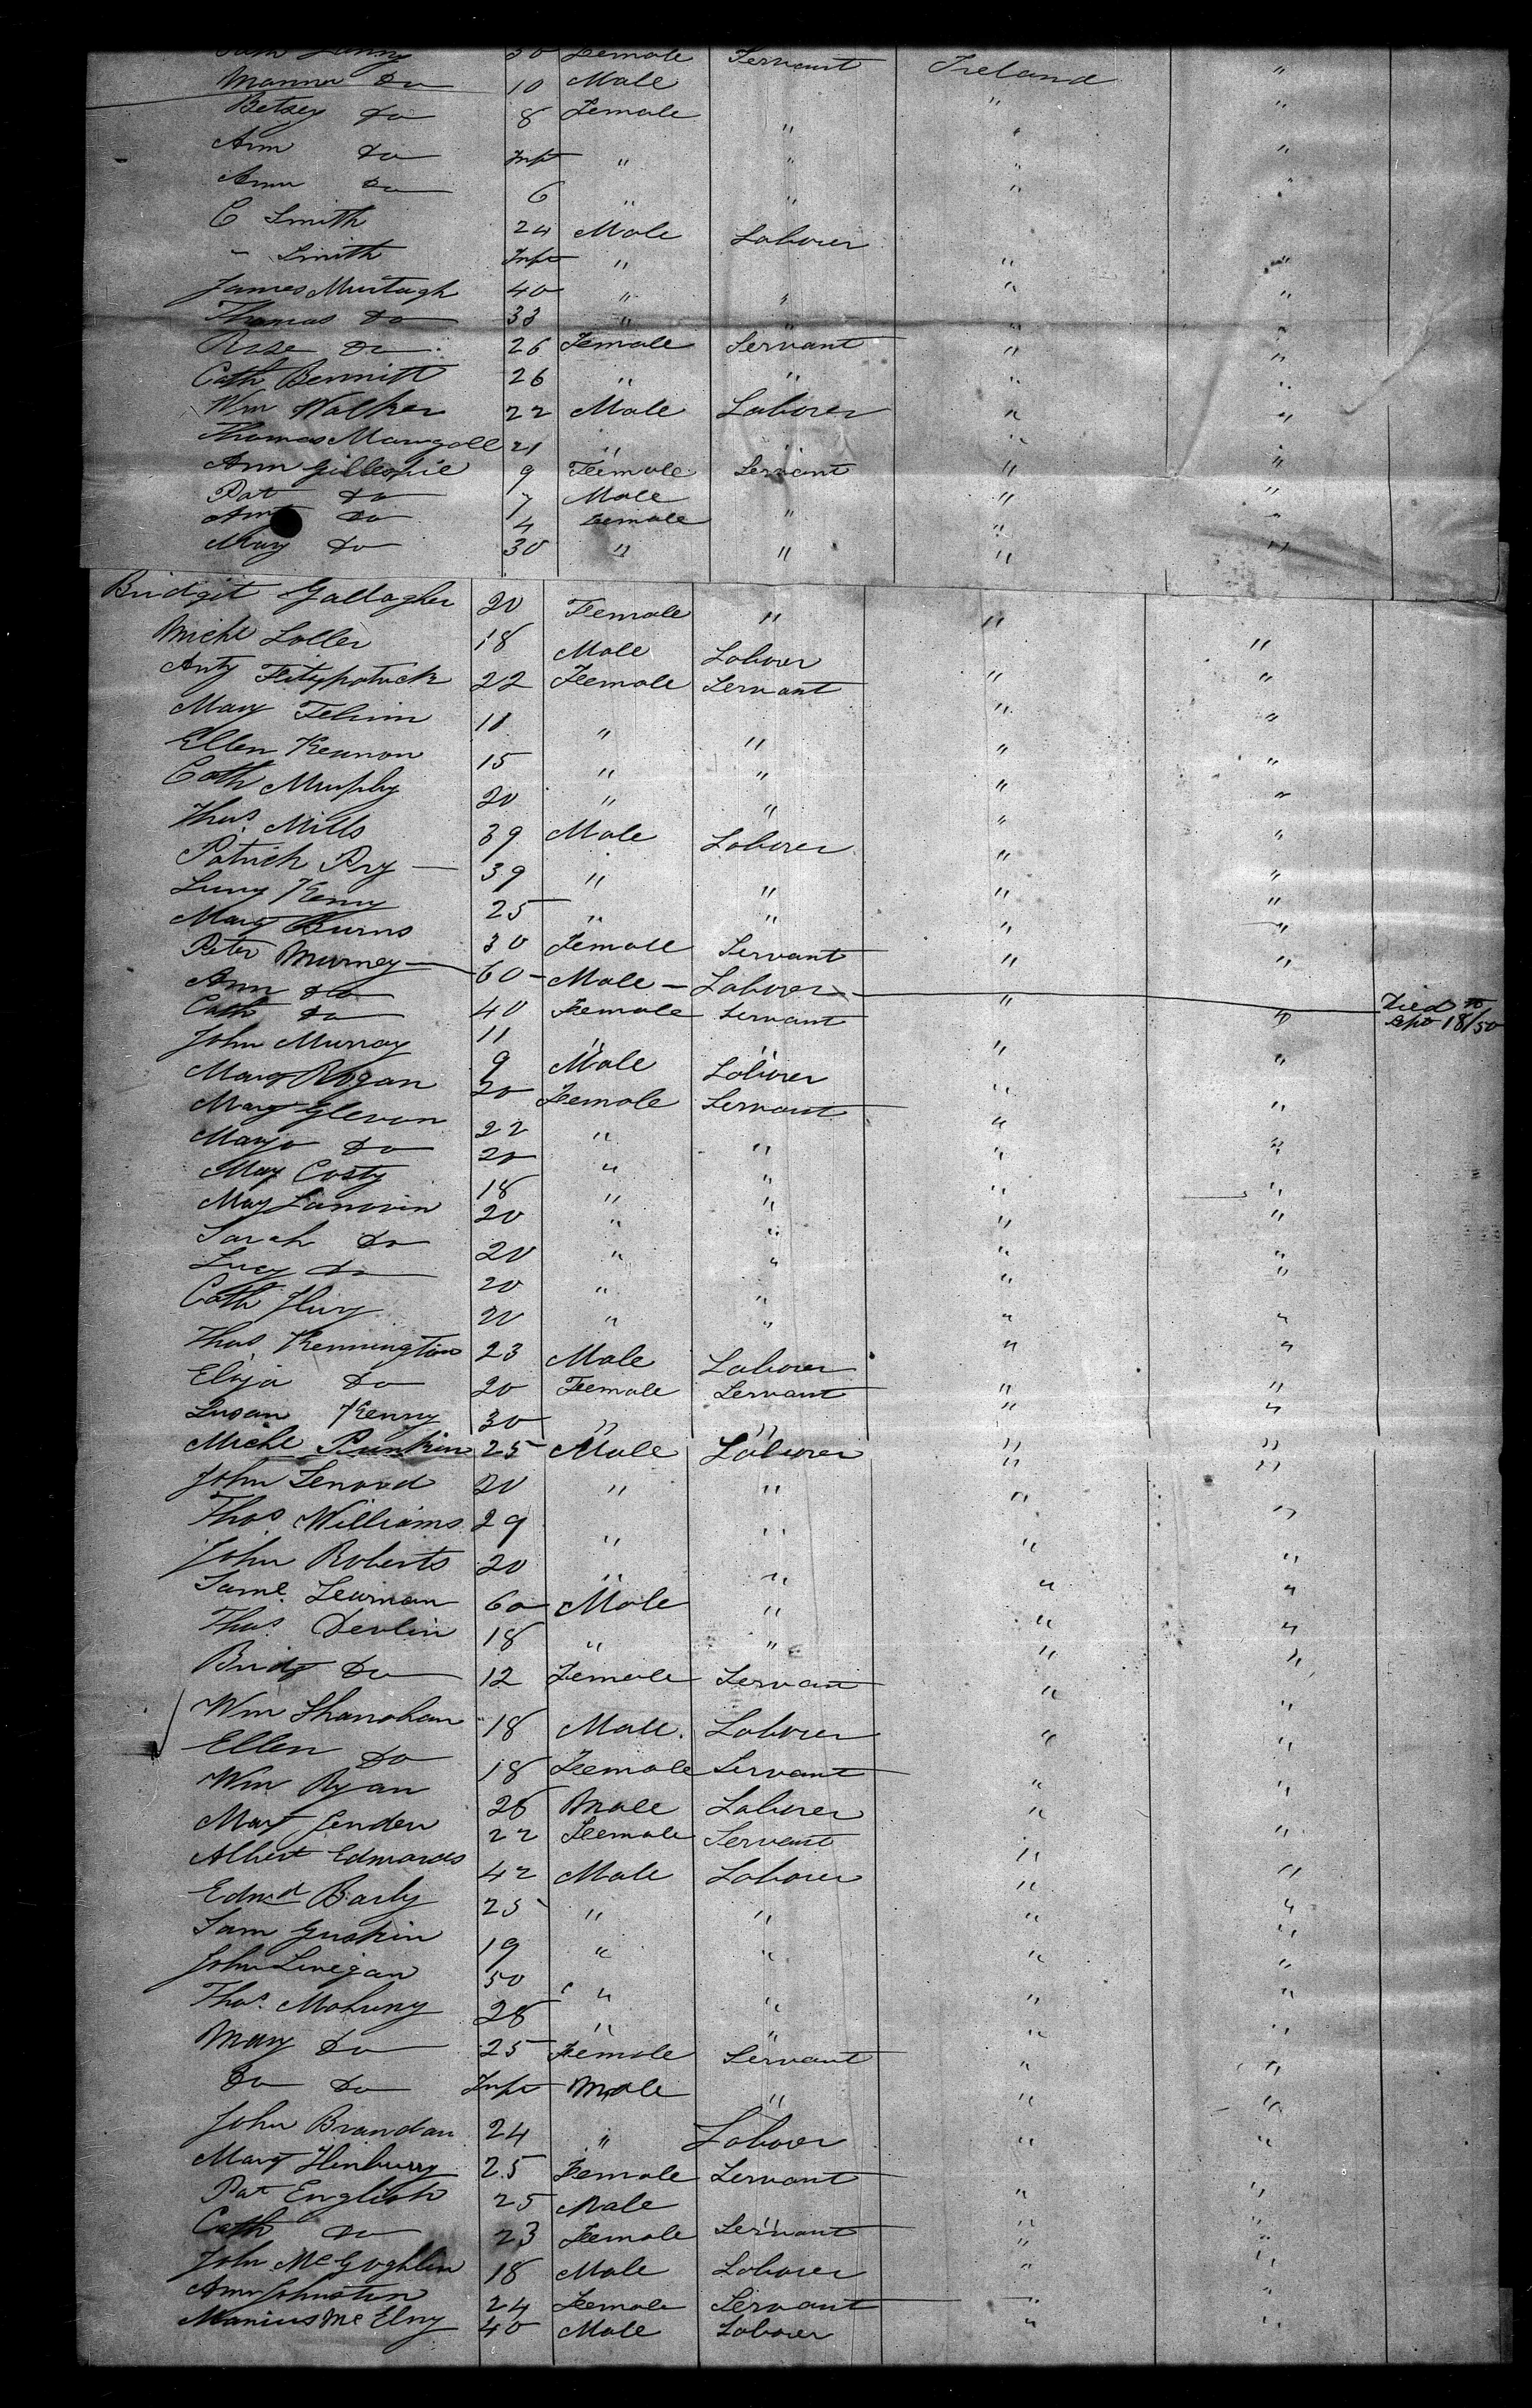 30 Female Servant Ireland "
Do 10 Male " "
Betsey Do 8 Female " " "
Ann Do Inft " " " "
Ann Do 6 " " " "
C Smith 24 Male Laborer
" Smith Inft " " "
James Murtagh 40 " " " "
Thomas Do 33 " " " "
Rose Do 26 Female Servant " "
Cath Bennitt 26 " " " "
Wm Walker 22 Male Laborer " "
Thomas 21 " " " "
Ann Gillespie 9 Female Servant " "
Pat Do 7 Male " "
Do 4 Female " " "
Mary Do 30 " " " "
Bridgit Gallagher 20 Female " "
Michl Loller 18 Male Laborer "
Anty Fitzpatrick 22 Female Servant " "
Mary 11 " " " "
Ellen Keunon 15 " " " "
Cath Murphy 20 " " " "
Thos. Mills 39 Male Laborer " "
Patrick Pry 39 " " " "
Kenny 25 " " " "
Margt Burns 30 Female Servant " "
Peter Murney 60 Male Laborer " " Died Sept 18/50
Ann Do 40 Female Servant " "
Cath Do 11 " "
John Murray 9 Male Laborer " "
Margt Rogan 20 Female Servant " "
Margt Glevon 22 " " " "
Do 20 " " " "
Mary Costy 18 " " " "
Mary 20 " " " "
Sarah Do 20 " " " "
Lucy Do 20 " " " "
Cath 20 " " " "
Thos. Kennington 23 Male Laborer " "
Eliza Do 20 Female Servant " "
Susan Kenny 30 " " " "
Michl Runkin 25 Male Laborer " "
John Lenord 20 " " " "
Thos Williams 29 " " " "
John Roberts 20 " " " "
Saml. 60 Male " " "
Thos. Devlin 18 " " " "
Bridt Do 12 Female Servant " "
Wm Shanahan 18 Male Laborer " "
Ellen Do 18 Female Servant " "
Wm Ryan 26 Male Laborer " "
Margt 22 Female Servant " "
Albert Edwards 42 Male Laborer " "
Edwd Barly 25 " " " "
Sam Guskin 19 " " " "
John Linegan 50 " " " "
Thos. Mahuny 28 " " " "
Mary Do 25 Female Servant " "
Do Do Inft Male " " "
John Brandan 24 " Laborer " "
Margt 25 Female Servant " "
Pat English 25 Male " " "
Cath Do 23 Female Servant " "
John McGoghlin 18 Male Laborer " "
Ann Johnston 24 Female Servant " "
Manius McElny 40 Male Laborer " "